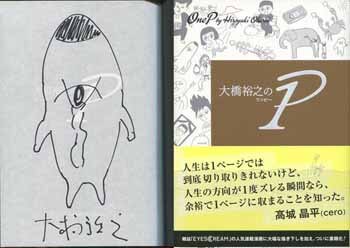 大橋裕之
One P by Hiroyuki Ohashi
大橋裕之の
ワンピー
P
人生は1ページでは
到底切り取りきれないけど、
人生の方向が1度ズレる瞬間なら、
余裕で1ページに収まることを知った。
高城晶平(cero)
雑誌「EYESCREAM」の人気連載漫画に大幅な描き下しを加え、ついに書籍化!